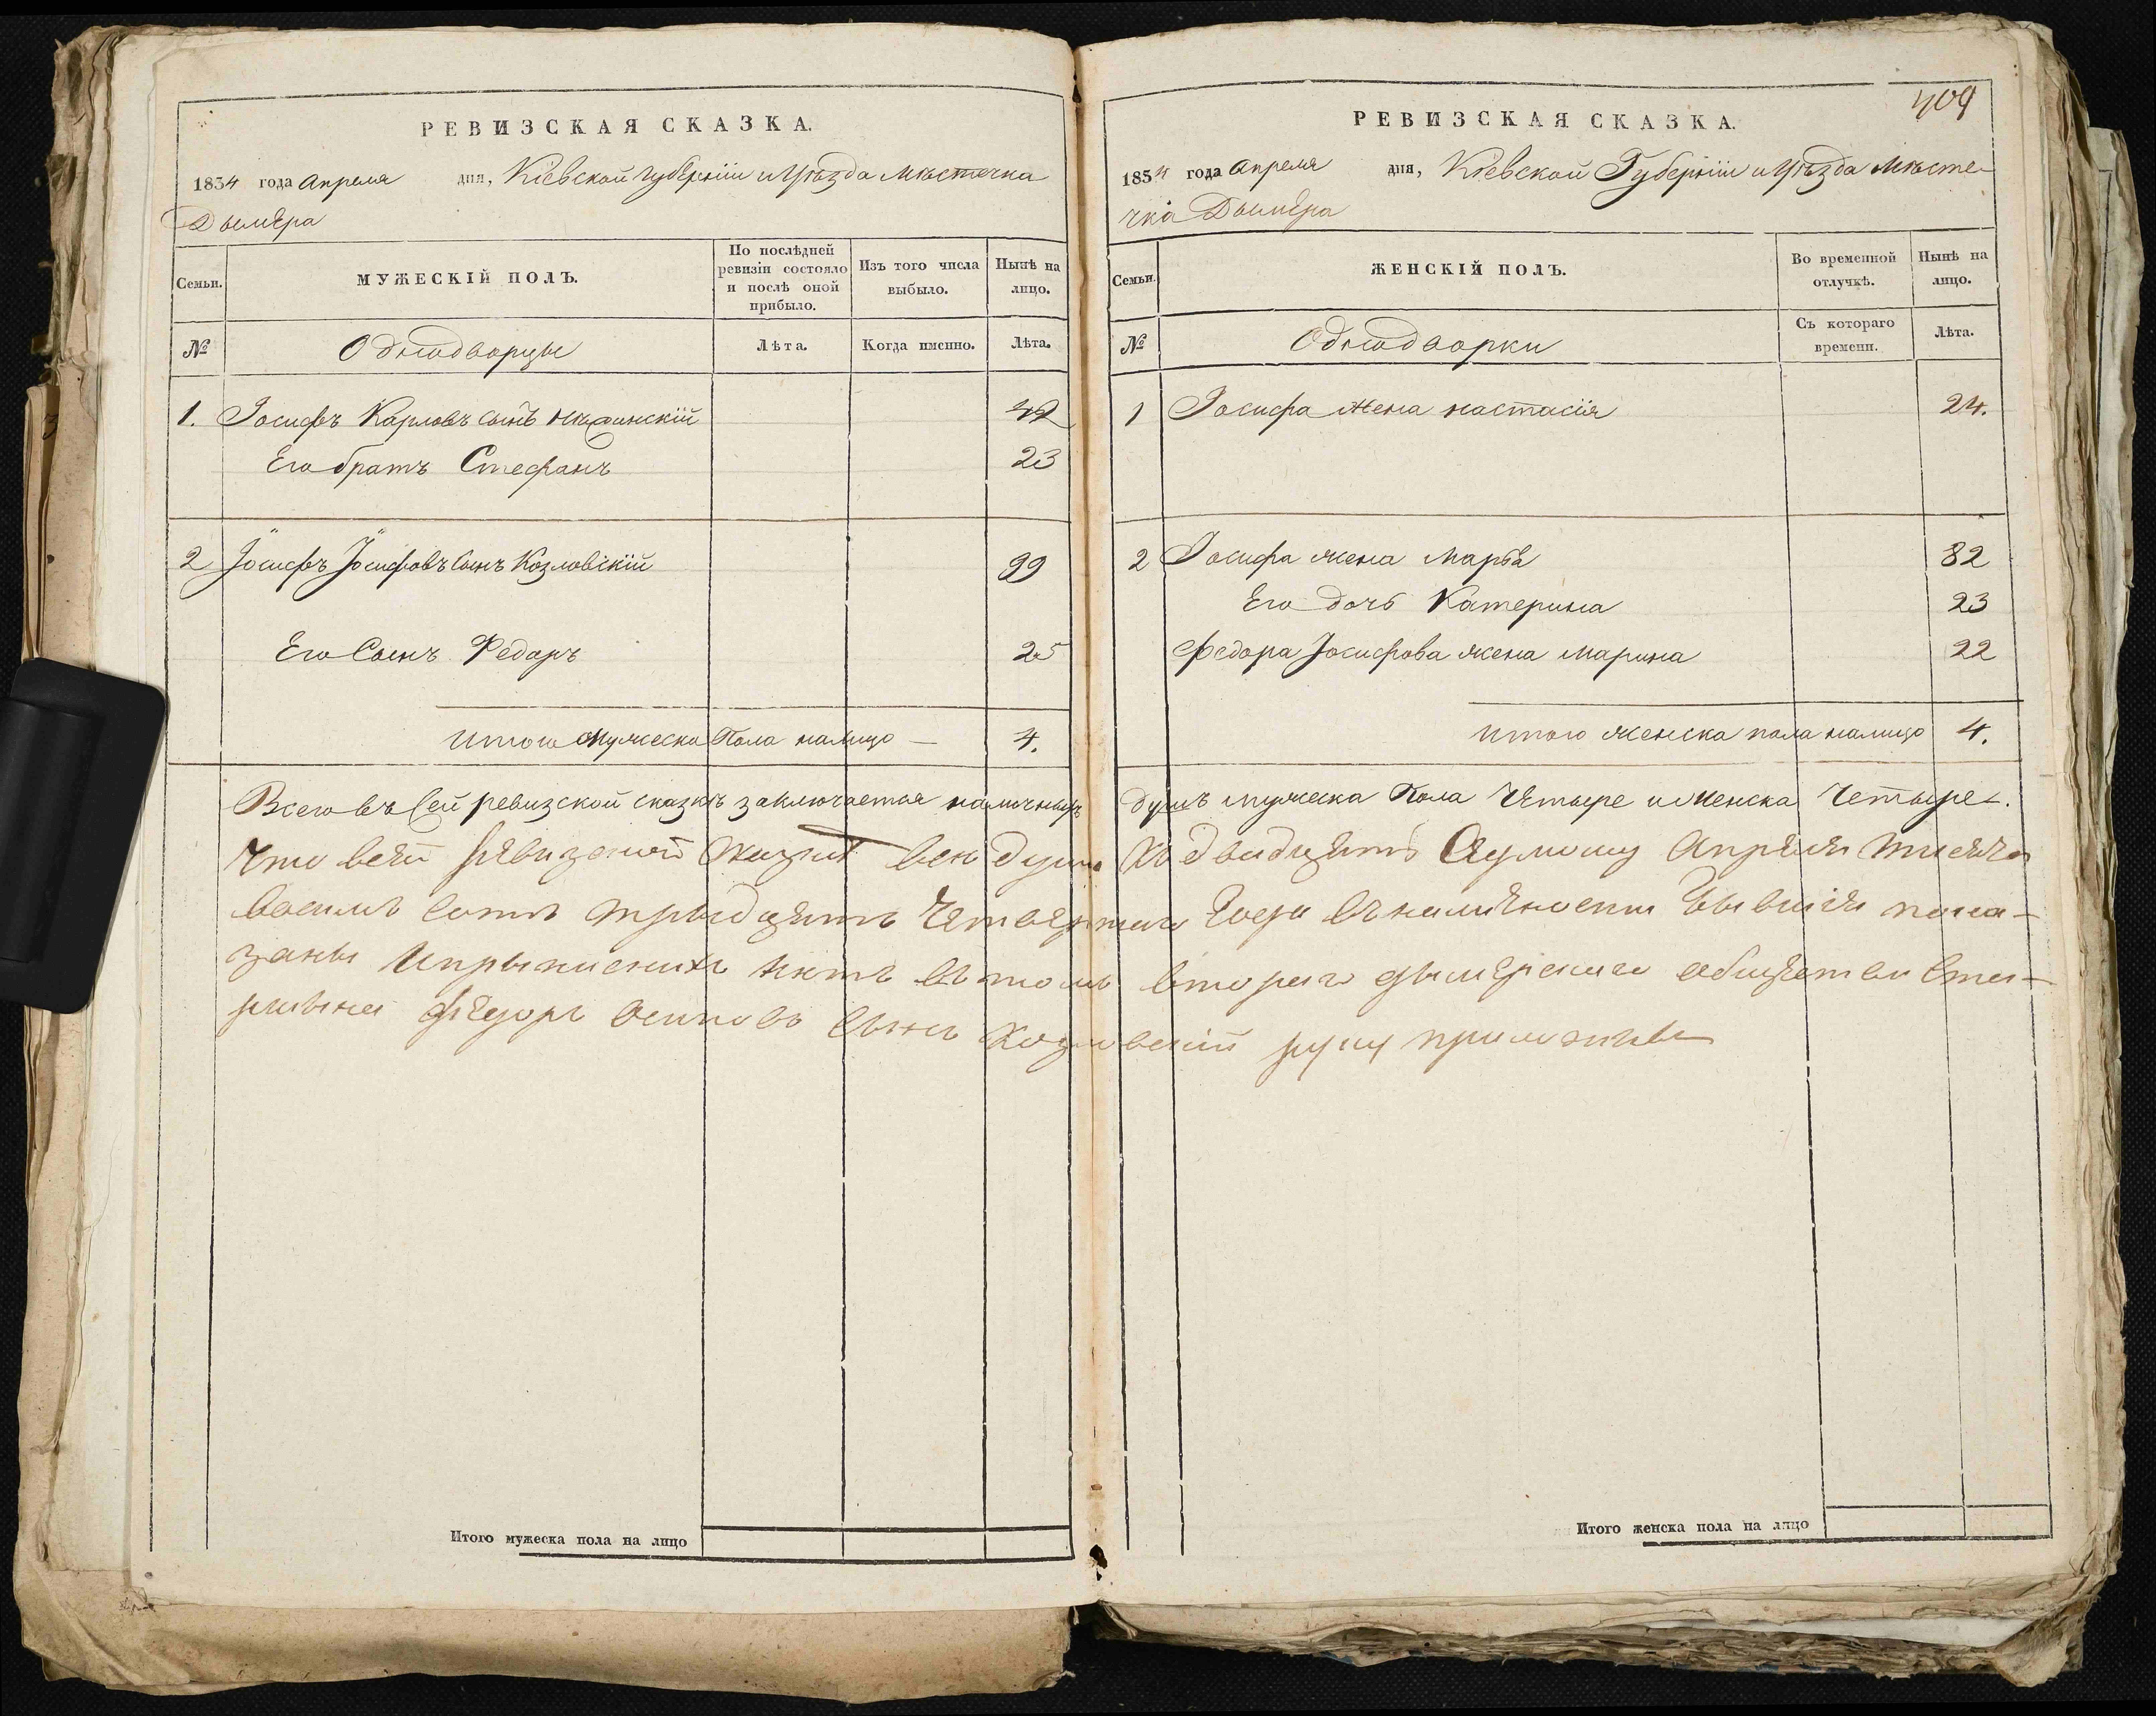 РЕВИЗСКАЯ СКАЗКА.
1834 года Апреля дня, Кіевской губерніи и уѣзда мѣстечка
Дымера
Семьи.
МУЖЕСКІЙ ПОЛЪ.
По послѣдней ревизіи состояло и послѣ оной прибыло.
Изъ того числа выбыло.
Нынѣ на лицо.
№
Однодворцы
Лѣта.
Когда именно.
Лѣта.
1. Іосифъ Карловъ сынъ
Его братъ Стефанъ 23
2 Іосифъ Іосифовъ сынъ Козловскій 99
Его Сынъ Федоръ 25
Итого Мужеска Пола налицо — 4.
Итого мужеска пола на лицо
409
РЕВИЗСКАЯ СКАЗКА.
1834 года Апреля дня, Кіевской Губерніи и уѣзда мѣсте-
чка Дымера
Семьи.
ЖЕНСКІЙ ПОЛЪ.
Во временной отлучкѣ.
Нынѣ на лицо.
№
Однодворки
Съ котораго времени.
Лѣта.
1 Іосифа жена настасія 24.
2 Іосифа жена марья 82
Его дочь Катерина 23
Федора Іосифова жена марина 22
Итого женска пола налицо 4.
Всего въ Сей ревизской сказкѣ заключается наличныхъ душъ мужеска Пола Четыре и женска Четыре.
Что всей ревизкой сказке все души къ двадцять Апреля тисяча
восимъ сотъ трыдцять Четвертаго года въ наличности бывшія пока-
заны и прыписнихъ нѣтъ въ томъ второго дымерскаго общества ста-
Федоръ Осиповъ сынъ Козловскій руку приложилъ
Итого женска пола на лицо